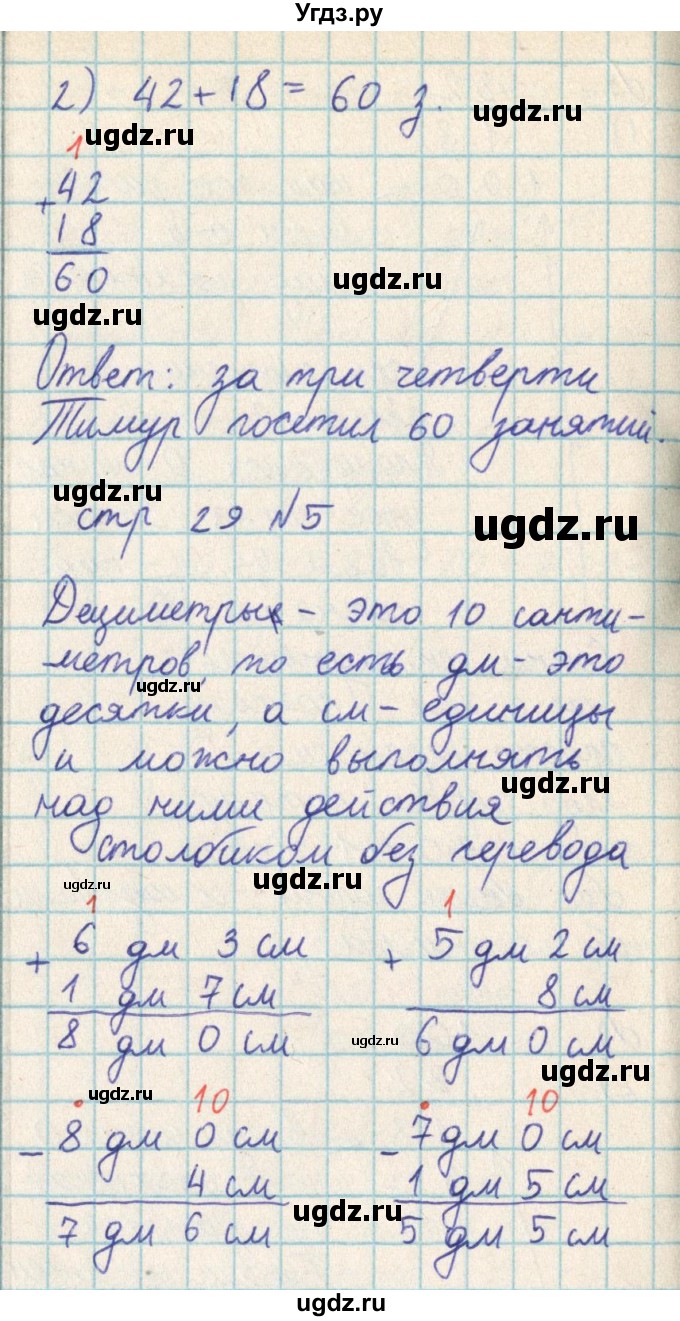 Угдз.ру
2) 42+18= 60 з.
ugdz.ru
ugdz.ru
1
+42
18
60
ugdz.ru
ugdz.ru
Ответ: за три четверти
Тимур посетил 60 занятий.
ugdz.ru
стр 29 №5
ugdz.ru
Дециметры - это 10 санти-
метров, то есть дм - это
ugdz.ru
десятки, а см - единицы
и можно выполнять
ugdz.ru
над ними действия
столбиком без перевода
ugdz.ru
ugdz.ru
1 1
+ 6 дм 3 см + 5 дм 2 см
1 дм 7 см 8 см
8 дм 0 см 6 дм 0 см
ugdz.ru
ugdz.ru
ugdz.ru
. 10 . 10
- 8 дм 0 см - 7 дм 0 см
4 см 1 дм 5 см
7 дм 6 см 5 дм 5 см
ugdz.ru
ugdz.ru